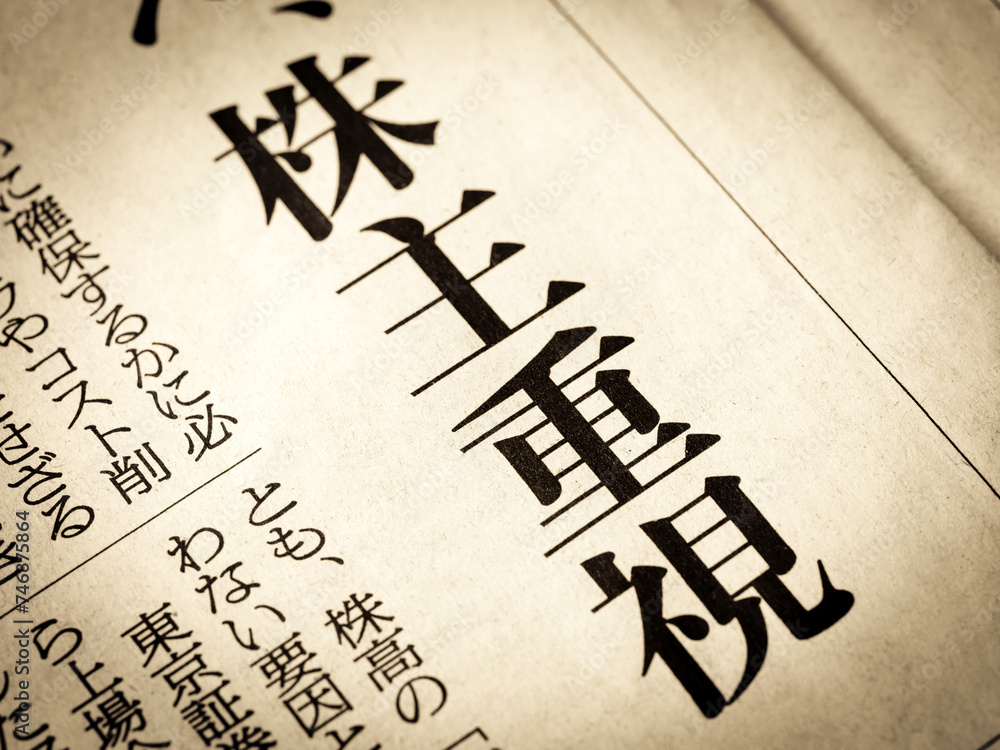 株主重視
に確保するかに必
やコスト削
せざる
とも、株高の
わない要因と
東京証券
ら上場
Adobe Stock | #746875864